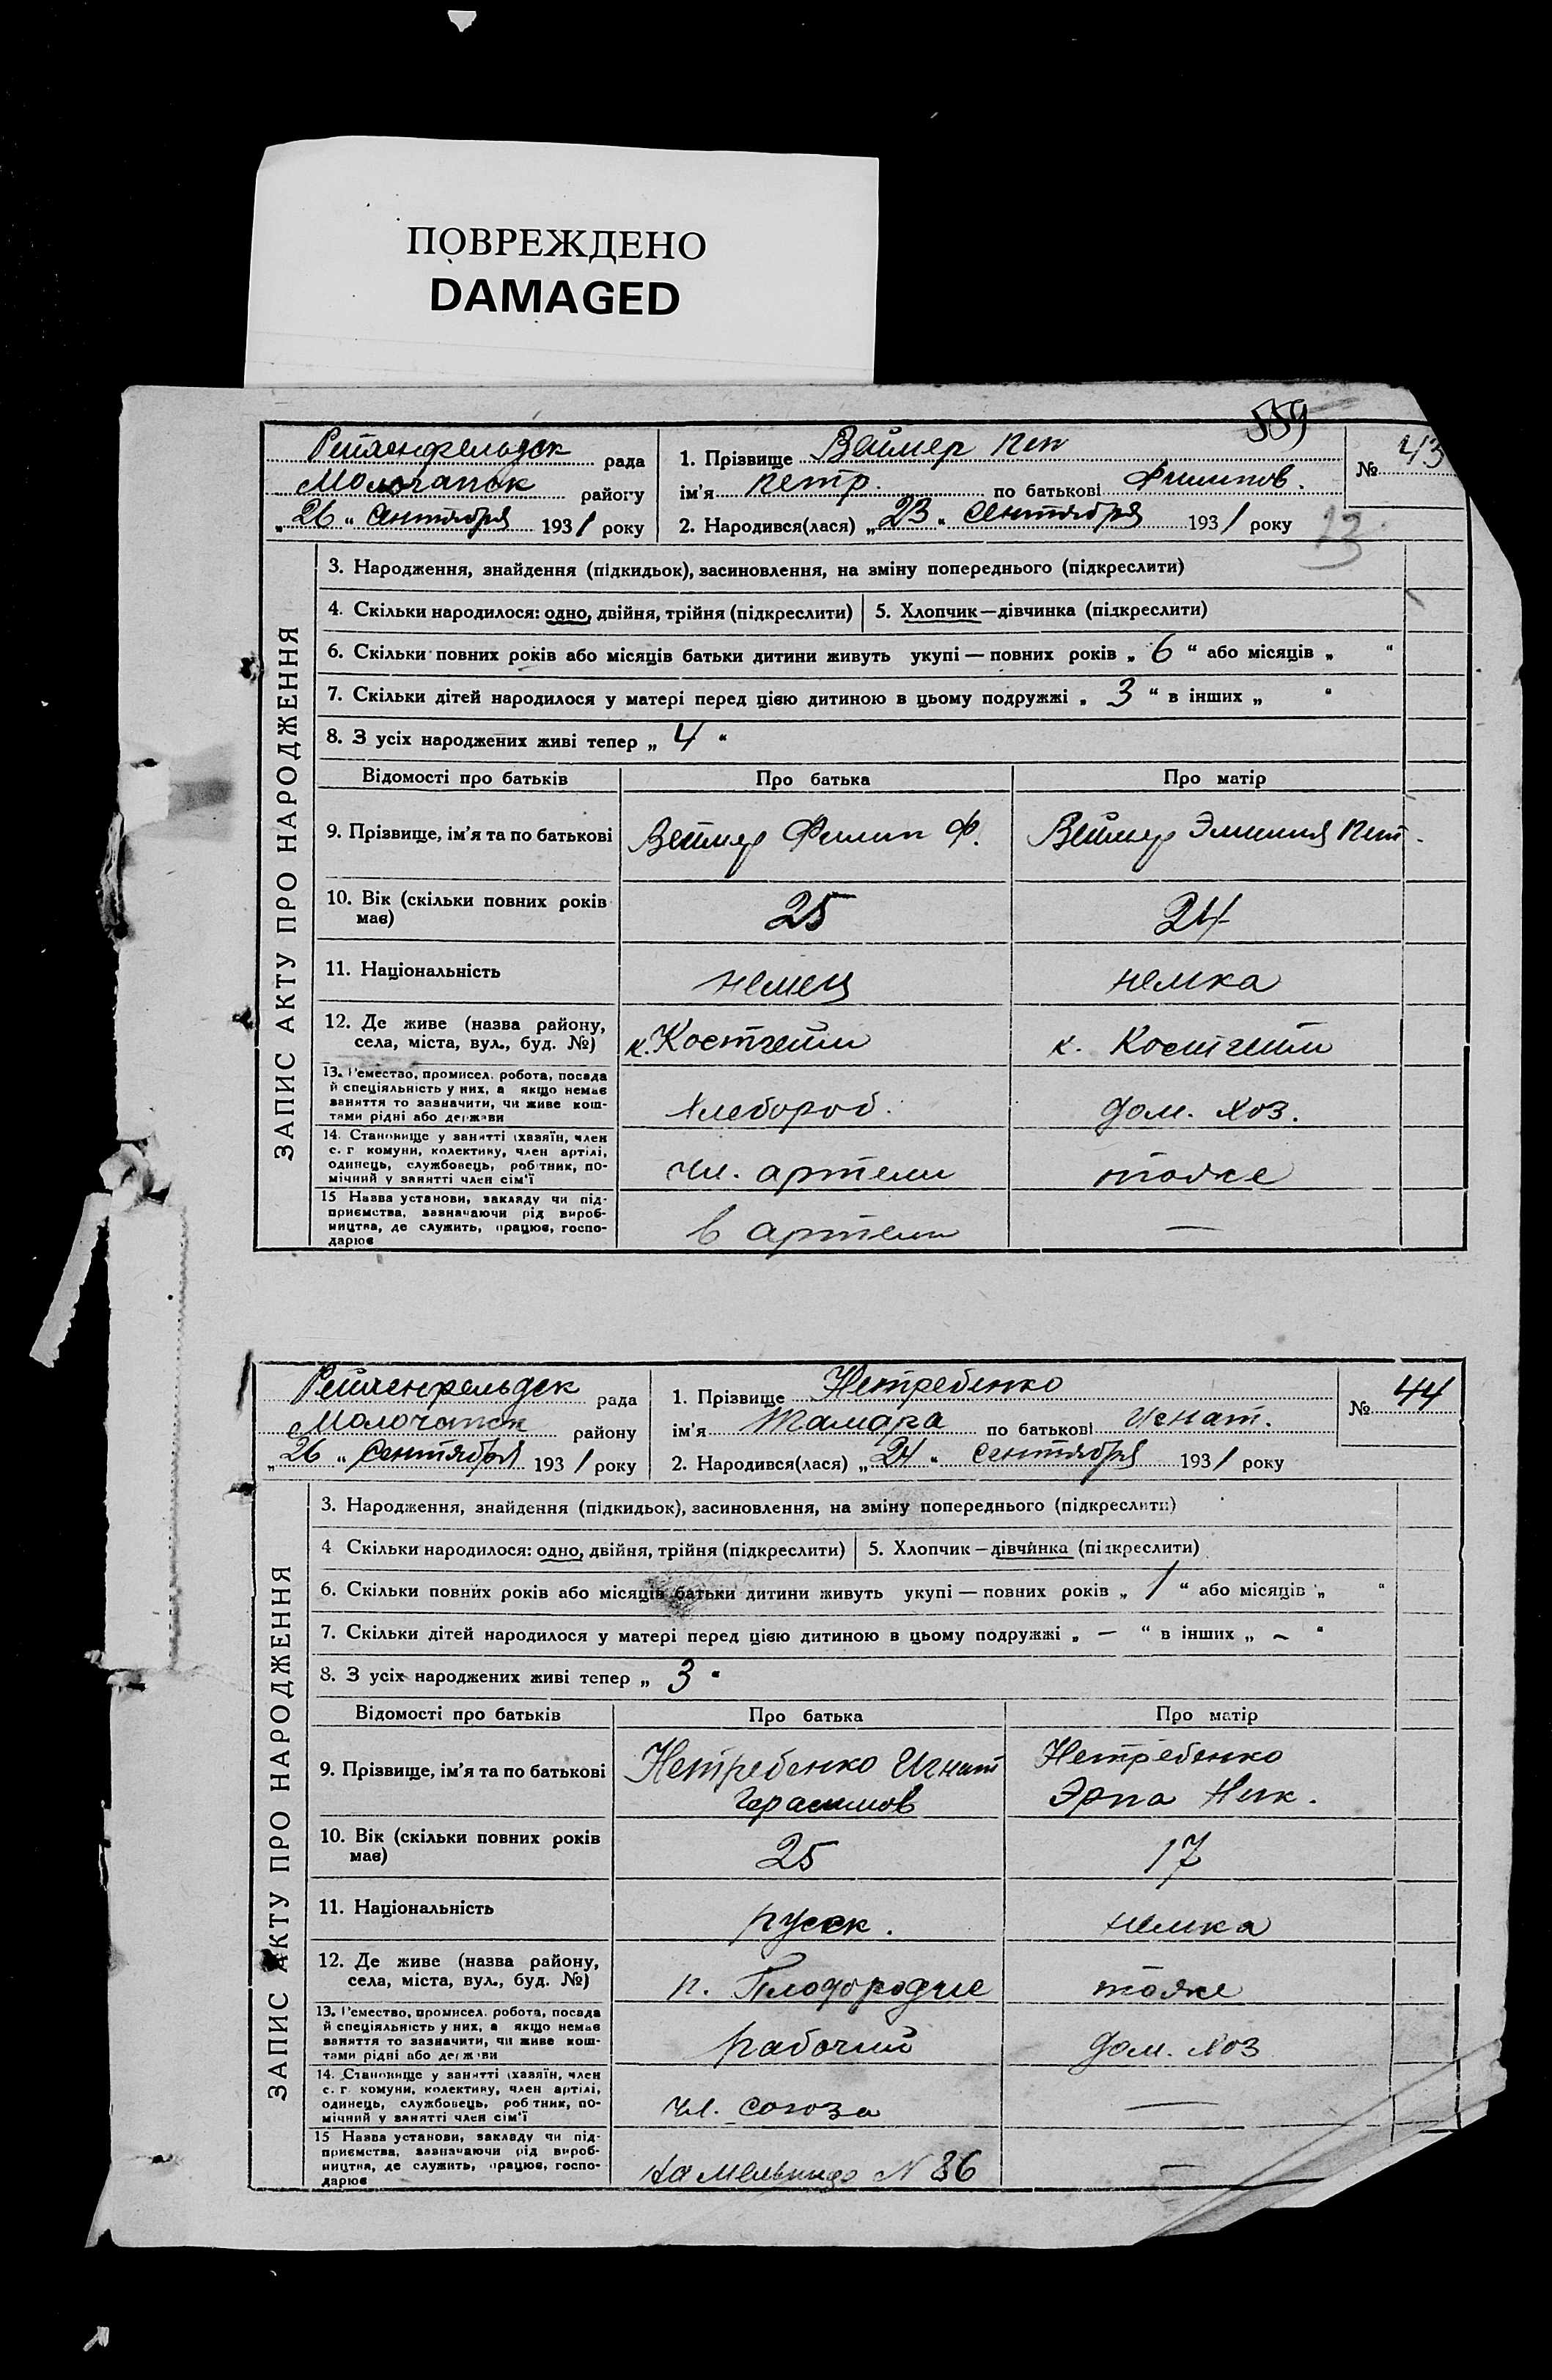 ПОВРЕЖДЕНО
DAMAGED
559
Рейхенфельдск рада
Молочанск району
„26“ Сентября 1931 року
1. Прізвище Веймер Пет
ім'я Петр. по батькові Филипов.
2. Народився(лася) „23“ Сентября 1931 року
№ 43
13
ЗАПИС АКТУ ПРО НАРОДЖЕННЯ
3. Народження, знайдення (підкидьок), засиновлення, на зміну попереднього (підкреслити)
4. Скільки народилося: одно, двійня, трійня (підкреслити) 5. Хлопчик—дівчинка (підкреслити)
6. Скільки повних років або місяців батьки дитини живуть укупі — повних років „6“ або місяців „ “
7. Скільки дітей народилося у матері перед цією дитиною в цьому подружжі „3“ в інших „ “
8. З усіх народжених живі тепер „4“
Відомості про батьків Про батька Про матір
9. Прізвище, ім'я та по батькові Веймер Филип Ф. Веймер Эмилия Пет.
10. Вік (скільки повних років має) 25 24
11. Національність немец немка
12. Де живе (назва району, села, міста, вул., буд. №) к. Костгейм к. Костгейм
13. Ремество, промисел, робота, посада й спеціяльність у них, а якщо немає заняття то зазначити, чи живе коштами рідні або держави хлебороб. дом. хоз.
14. Становище у занятті (хазяїн, член с. г комуни, колективу, член артілі, одинець, службовець, робітник, помічний у занятті член сім'ї чл. артели тоже
15 Назва установи, закладу чи підприємства, зазначаючи рід виробництва, де служить, працює, господарює в артели —
Рейхенфельдск рада
Молочанск району
„26“ Сентября 1931 року
1. Прізвище Нетребенко
ім'я Тамара по батькові Игнат.
2. Народився(лася) „24“ сентября 1931 року
№ 44
ЗАПИС АКТУ ПРО НАРОДЖЕННЯ
3. Народження, знайдення (підкидьок), засиновлення, на зміну попереднього (підкреслити)
4 Скільки народилося: одно, двійня, трійня (підкреслити) 5. Хлопчик—дівчинка (підкреслити)
6. Скільки повних років або місяців батьки дитини живуть укупі — повних років „1“ або місяців „ “
7. Скільки дітей народилося у матері перед цією дитиною в цьому подружжі „—“ в інших „—“
8. З усіх народжених живі тепер „3“
Відомості про батьків Про батька Про матір
9. Прізвище, ім'я та по батькові Нетребенко Игнат Герасимов Нетребенко Эрна Ник.
10. Вік (скільки повних років має) 25 17
11. Національність русск. немка
12. Де живе (назва району, села, міста, вул., буд. №) п. Плодородие тоже
13. Ремество, промисел, робота, посада й спеціяльність у них, а якщо немає заняття то зазначити, чи живе коштами рідні або держави рабочий дом. хоз
14. Становище у занятті (хазяїн, член с. г комуни, колективу, член артілі, одинець, службовець, робітник, помічний у занятті член сім'ї чл. союза —
15 Назва установи, закладу чи підприємства, зазначаючи рід виробництва, де служить, працює, господарює на мельнице N 86 —